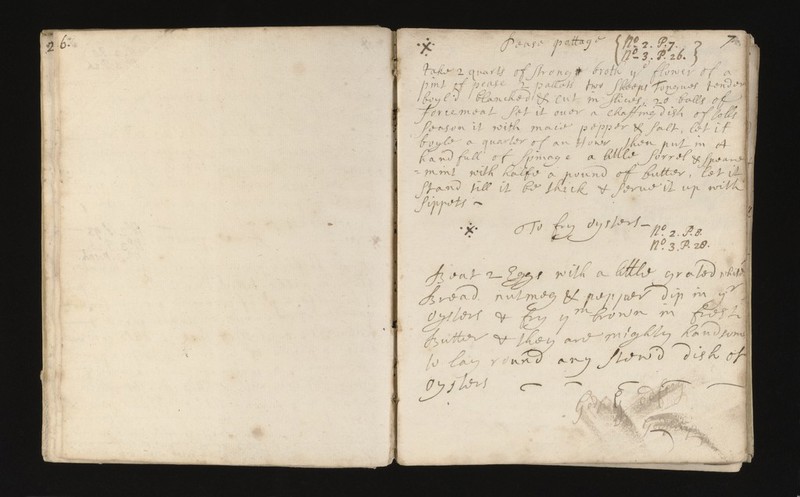 26.
7
Pease pottage { No. 2. P. 7.
No. 3. P. 26. }
take 2 quarts of strong broth ye flower of a
pint of pease 2 pallots two Sheeps Tongues tender
boyl'd blanched & cut in slices 20 balls of
forcemeat set it over a chaffing dish of
season it with mace pepper & salt, let it
boyle a quarter of an Hower then put in a
hand full of Spinage a little sorrel & speare
=mint with halfe a pound of butter, let it
stand till it be thick & serve it up with
Sippets ~
To fry oysters ~ No. 2. P. 8.
No. 3. P. 28.
Beat 2 Eggs with a little grated white
Bread nutmeg & pepper dip in yr
oysters & fry ym brown in fresh
Butter & they are mighty handsome
to lay round any stew'd dish of
oysters